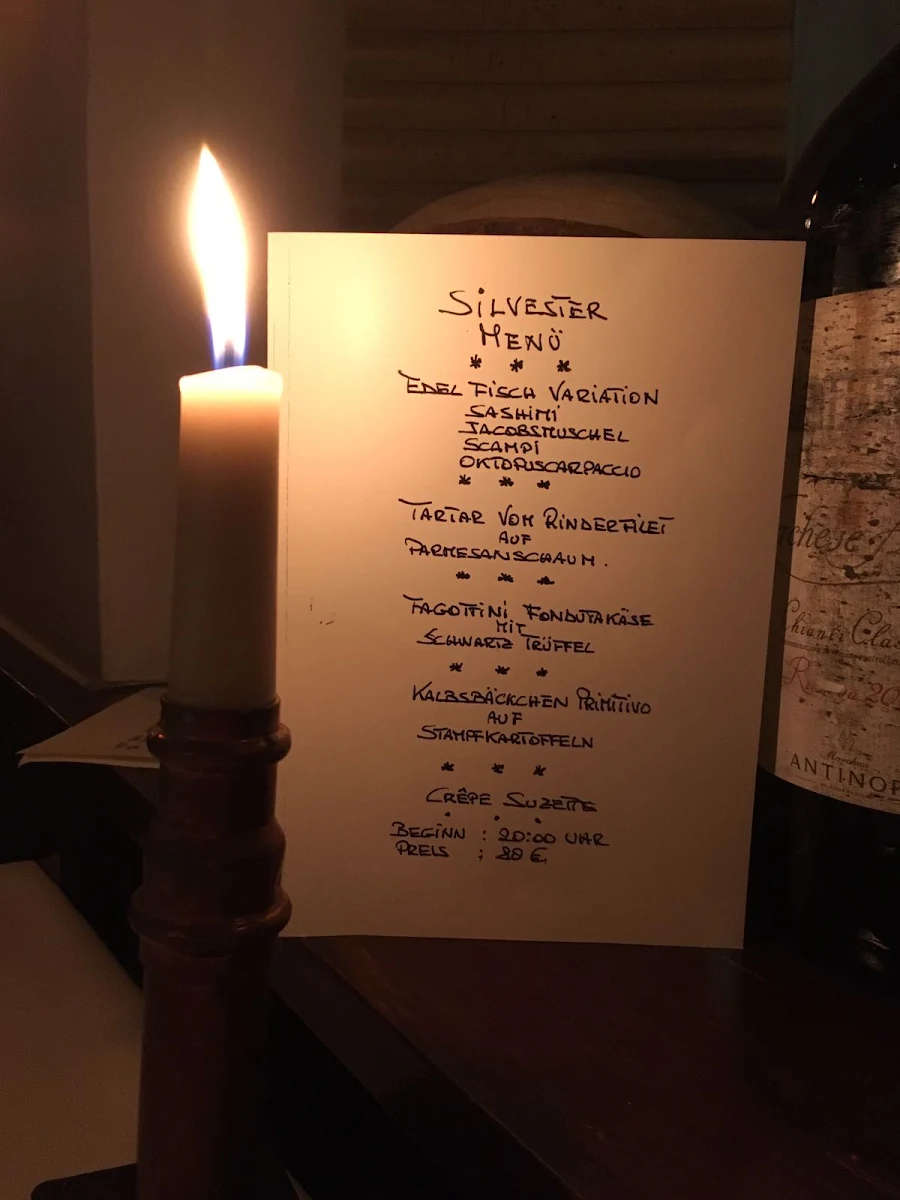 SILVESTER
MENÜ
* * *
EDEL FISCH VARIATION
SASHIMI
JACOBSMUSCHEL
SCAMPI
OKTOPUSCARPACCIO
* * *
TARTAR VOM RINDERFILET
AUF
PARMESANSCHAUM.
* * *
FAGOTTINI FONDUTAKÄSE
MIT
SCHWARTZ TRÜFFEL
* * *
KALBSBÄCKCHEN PRIMITIVO
AUF
STAMPFKARTOFFELN
* * *
CRÊPE SUZETTE
. . .
BEGINN : 20:00 UHR
PREIS : 80 €
Chianti Clas
ANTINOR